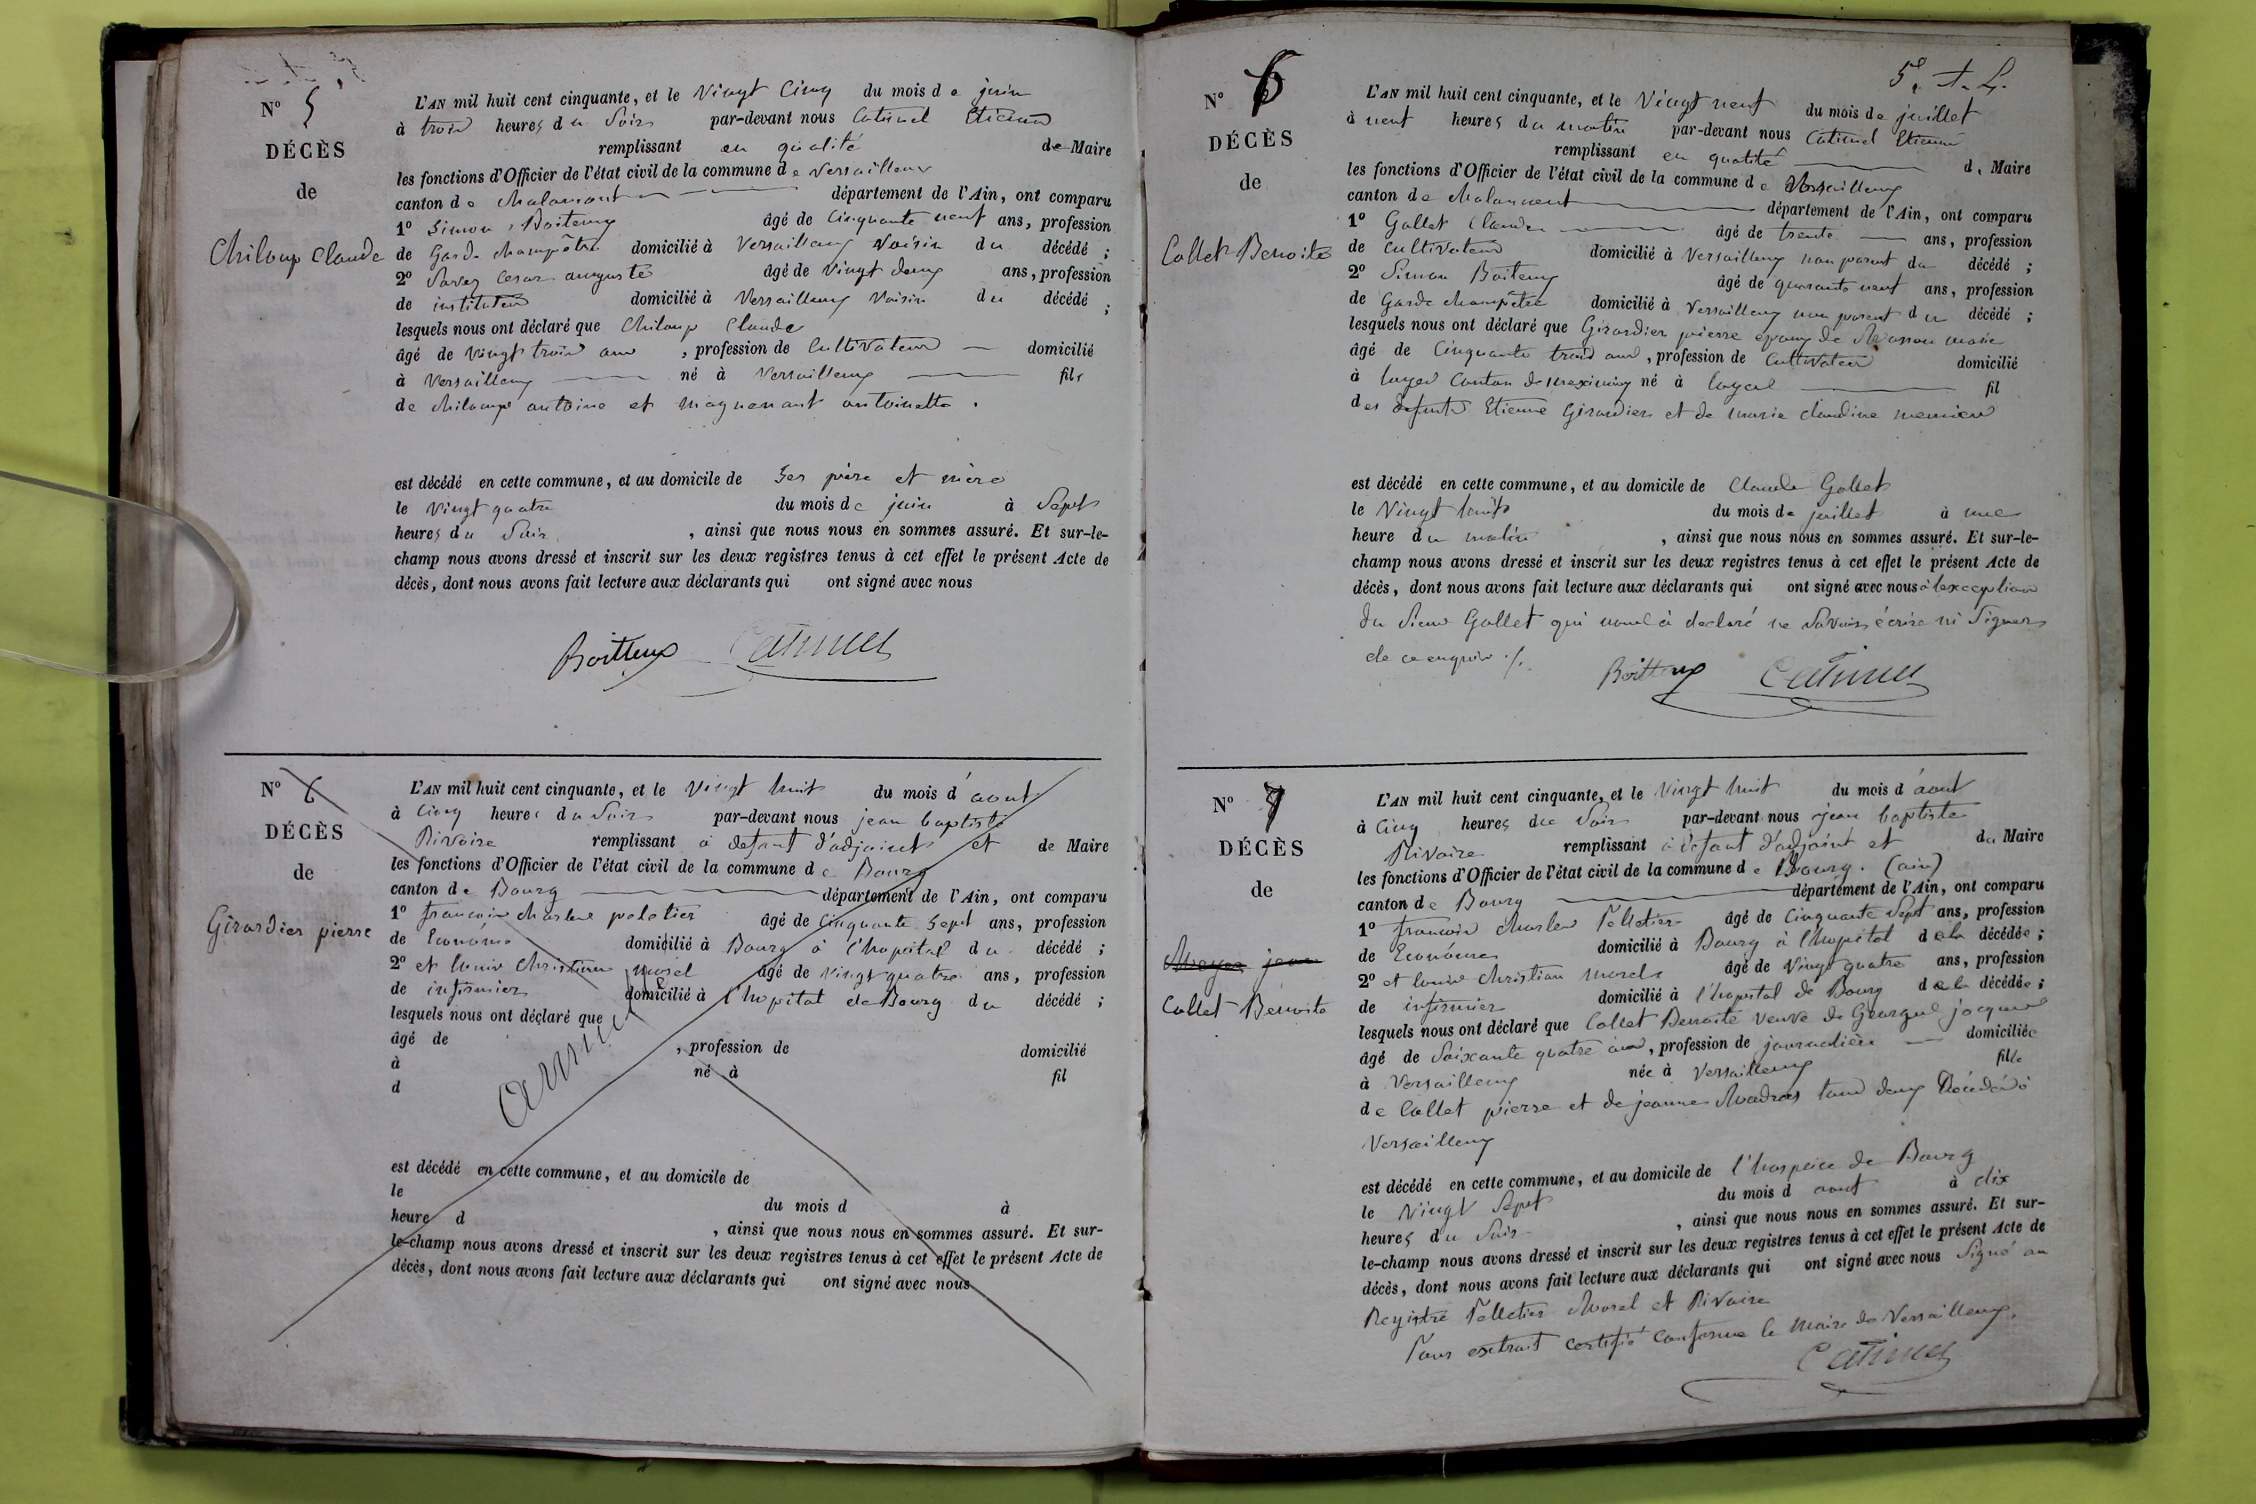 N° 5
DÉCÈS
de
Chiloup Claude
L'AN mil huit cent cinquante, et le Vingt Cinq du mois de juin
à trois heures du Soir par-devant nous Catimel Etienne
remplissant en qualité de Maire
les fonctions d'Officier de l'état civil de la commune de Versailleux
canton de Chalamont département de l'Ain, ont comparu
1° Simon Boiteux âgé de Cinquante neuf ans, profession
de Garde champêtre domicilié à Versailleux Voisin du décédé ;
2° Cesar auguste âgé de Vingt deux ans, profession
de instituteur domicilié à Versailleux Voisin du décédé ;
lesquels nous ont déclaré que Chiloup Claude
âgé de Vingt trois ans , profession de Cultivateur domicilié
à Versailleux né à Versailleux fils
de chiloup antoine et Magnenant antoinette .
est décédé en cette commune, et au domicile de Ses père et mère
le Vingt quatre du mois de juin à Sept
heures du Soir , ainsi que nous nous en sommes assuré. Et sur-le-
champ nous avons dressé et inscrit sur les deux registres tenus à cet effet le présent Acte de
décès, dont nous avons fait lecture aux déclarants qui ont signé avec nous
Boitteux Catimel
N° 6
DÉCÈS
de
Girardier pierre
L'AN mil huit cent cinquante, et le Vingt huit du mois d'aout
à Cinq heures du Soir par-devant nous jean baptiste
Rivoire remplissant à defaut d'adjoint et de Maire
les fonctions d'Officier de l'état civil de la commune de Bourg
canton de Bourg département de l'Ain, ont comparu
1° francois charles peletier âgé de Cinquante Sept ans, profession
de Econôme domicilié à Bourg à l'hopital du décédé ;
2° et louis Christian morel âgé de Vingt quatre ans, profession
de infirmier domicilié à l'hopital de Bourg du décédé ;
lesquels nous ont déclaré que
âgé de , profession de domicilié
à né à fil
d
annullé
est décédé en cette commune, et au domicile de
le du mois d à
heure d , ainsi que nous nous en sommes assuré. Et sur-
le-champ nous avons dressé et inscrit sur les deux registres tenus à cet effet le présent Acte de
décès, dont nous avons fait lecture aux déclarants qui ont signé avec nous
N° 6
DÉCÈS
de
Collet Benoite
L'AN mil huit cent cinquante, et le Vingt neuf du mois de juillet
à neuf heures du matin par-devant nous Catimel Etienne
remplissant en qualité de Maire
les fonctions d'Officier de l'état civil de la commune de Versailleux
canton de Chalamont département de l'Ain, ont comparu
1° Gollet Claude âgé de trente ans, profession
de Cultivateur domicilié à Versailleux non parent du décédé ;
2° Simon Boiteux âgé de quarante neuf ans, profession
de Garde champêtre domicilié à Versailleux non parent du décédé ;
lesquels nous ont déclaré que Girardier pierre epoux de Masson marie
âgé de Cinquante trois ans , profession de Cultivateur domicilié
à loyes Canton de meximieux né à loyes fil
des defunts Etienne Girardier et de marie claudine
est décédé en cette commune, et au domicile de Claude Gollet
le Vingt huit du mois de juillet à une
heure du matin , ainsi que nous nous en sommes assuré. Et sur-le-
champ nous avons dressé et inscrit sur les deux registres tenus à cet effet le présent Acte de
décès, dont nous avons fait lecture aux déclarants qui ont signé avec nous à lexception
du Sieur Gollet qui nous à declaré ne Savoir écrire ni Signer
de ce enquis ./.
Boitteux Catimel
N° 7
DÉCÈS
de
Collet Benoite
L'AN mil huit cent cinquante, et le Vingt huit du mois d'aout
à Cinq heures du Soir par-devant nous jean baptiste
Rivoire remplissant à defaut d'adjoint et du Maire
les fonctions d'Officier de l'état civil de la commune de Bourg. (ain)
canton de Bourg département de l'Ain, ont comparu
1° francois charles Pelletier âgé de Cinquante Sept ans, profession
de Econôme domicilié à Bourg à l'hopital de la décédée ;
2° et louis christian morel âgé de Vingt quatre ans, profession
de infirmier domicilié à l'hopital de Bourg de la décédée ;
lesquels nous ont déclaré que Collet Benoite veuve de jacques
âgé de Soixante quatre ans , profession de journalière domiciliée
à Versailleux née à Versailleux fille
de Collet pierre et de jeanne tous deux Décédés à
Versailleux
est décédé en cette commune, et au domicile de l'hospice de Bourg
le Vingt Sept du mois d aout à dix
heures du Soir , ainsi que nous nous en sommes assuré. Et sur-
le-champ nous avons dressé et inscrit sur les deux registres tenus à cet effet le présent Acte de
décès, dont nous avons fait lecture aux déclarants qui ont signé avec nous Signé au
Registre Pelletier Morel et Rivoire
Pour extrait certifié conforme le Maire de Versailleux.
Catimel